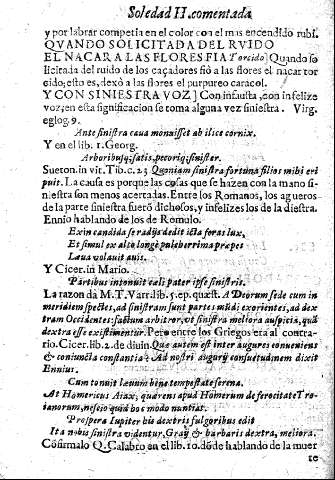 Soledad II. comentada
y por labrar competia en el color con el mas encendido rubi.
QVANDO SOLICITADA DEL RVIDO
EL NACAR A LAS FLORES FIA Torcido] Quando so
licitada del ruido de los caçadores fiò a las flores el nacar tor
cido; esto es, dexò a las flores el purpureo caracol.
Y CON SINIESTRA VOZ] Con infausta, con infelize
voz; en esta significacion se toma alguna vez siniestra. Virg.
eglog. 9.
Ante sinistra caua monuisset ab ilice cornix.
Y en el lib. 1. Georg.
Arboribusq; satis, pecoriq; sinister.
Sueton. in vit. Tib. c. 23 Quoniam sinistra fortuna filios mihi eri
puit. La causa es porque las cosas que se hazen con la mano si-
niestra son menos acertadas. Entre los Romanos, los agueros
de la parte siniestra fuerõ dichosos, y infelizes los de la diestra.
Ennio hablando de los de Romulo.
Exin candida se radijs dedit icta foras lux,
Et simul ex alto longè pulcherrima præpes
Læua volauit auis.
Y Cicer. in Mario.
Partibus intonuit cæli pater ipse sinistris.
La razon dà M. T. Varr. lib. 5. ep. quæst. A Deorum sede cum in
meridiem spectes, ad sinistram sunt partes mũdi exorientes, ad dex
tram Occidentes: factum arbitror, vt sinistra meliora auspicia, quã
dextra esse existimentur. Pero entre los Griegos era al contra-
rio. Cicer. lib. 2. de diuin. Quæ autem est inter augures conueniens
& coniuncta constantia? Ad nostri augurij consuetudinem dixit
Ennius.
Cum tonuit læuum bene tempestate serena.
At Homericus Aiax, quærens apud Homerum de ferocitate Tro-
ianorum, nescio quid hoc modo nuntiat.
Prospera Iupiter his dextris fulgoribus edit
Ita nobis sinistra videntur, Graijs & barbaris dextra, meliora.
Cõfirmalo Q. Calabro en el lib. 10. dõde hablando de la muer
te